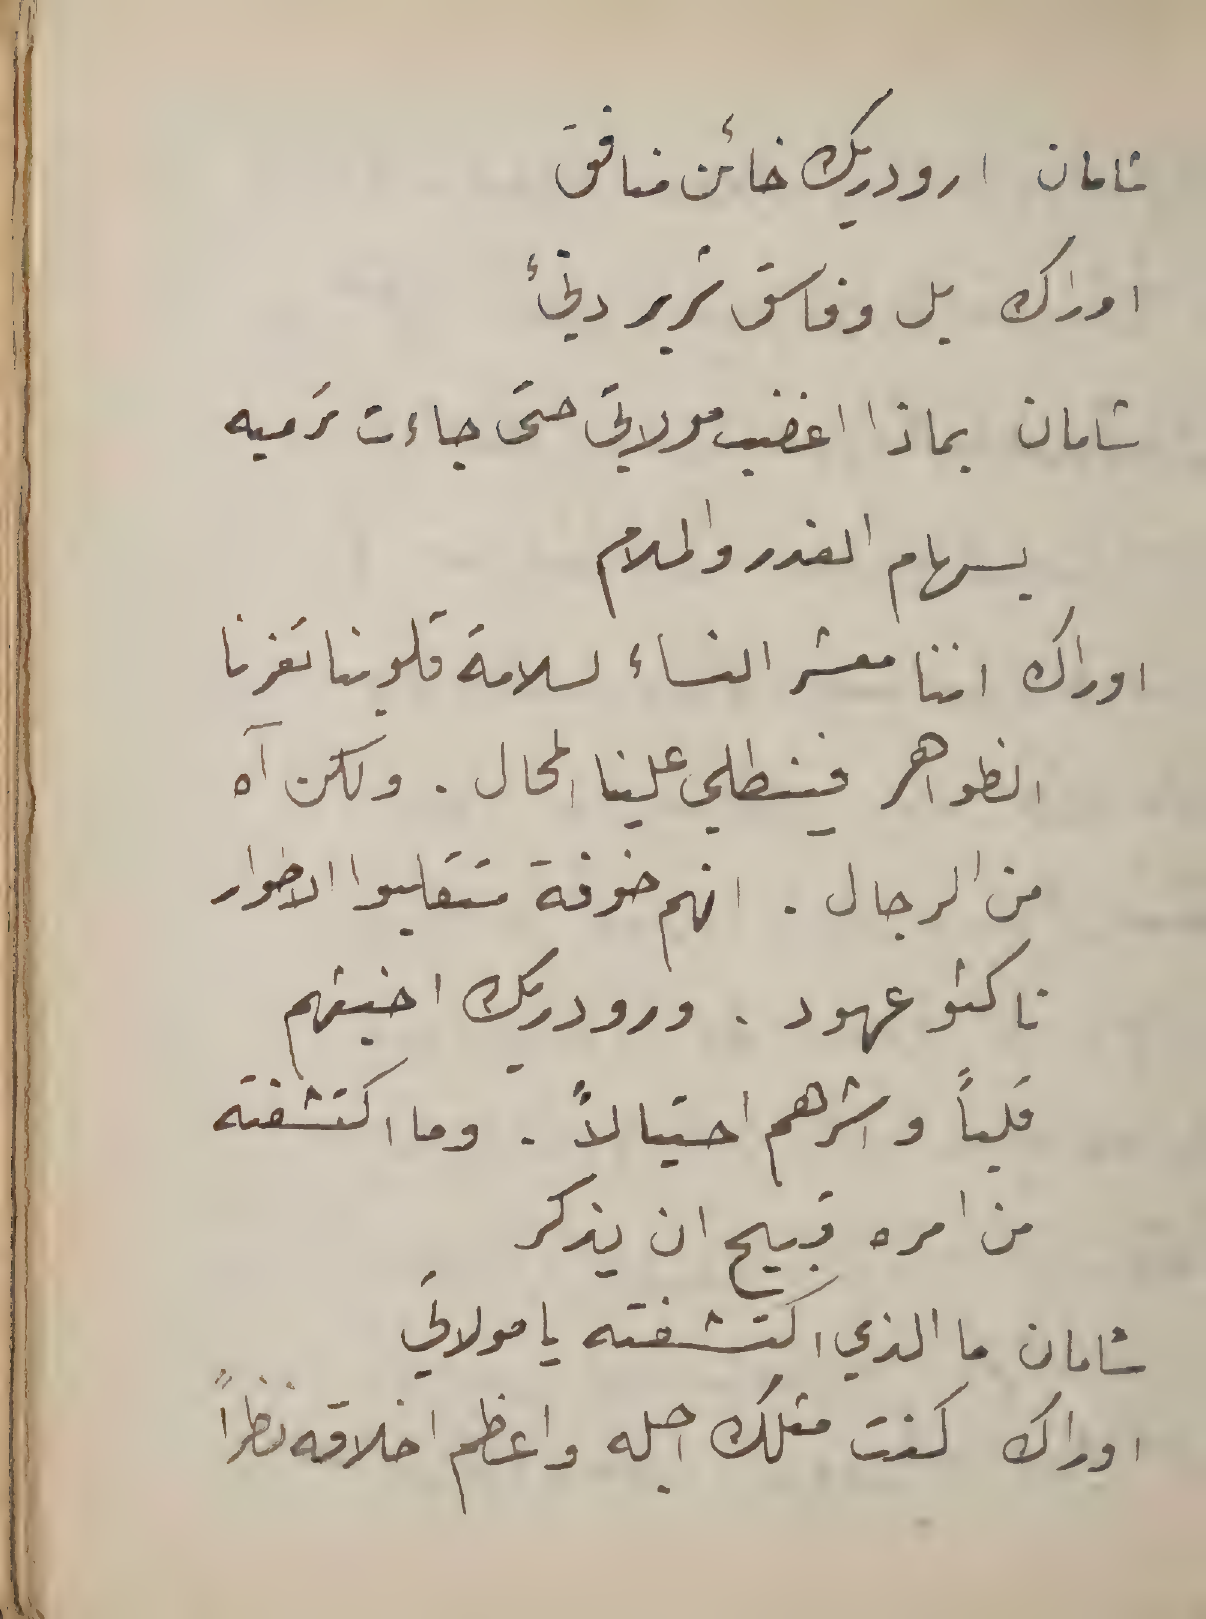 شامان ارودريك خائن منافق
اوراك بل وفاسق شرير دنئ
شامان بماذا اغضب مولاتي حتى جاءت ترميه
بسهام الغدر والملام
اوراك اننا معشر النساء لسلامة قلوبنا تغرنا
الظواهر فينطلي علينا المحال . ولكن آه
من الرجال . انهم خوفة متقلبوا الاطوار
ناكثو عهود . ورودريك اخبثهم
قلباً واشرهم احتيالاً . وما اكتشفته
من امره قبيح ان يذكر
شامان ما الذي اكتشفته يا مولاتي
اوراك كنت مثلك اجله واعظم اخلاقه نظراً